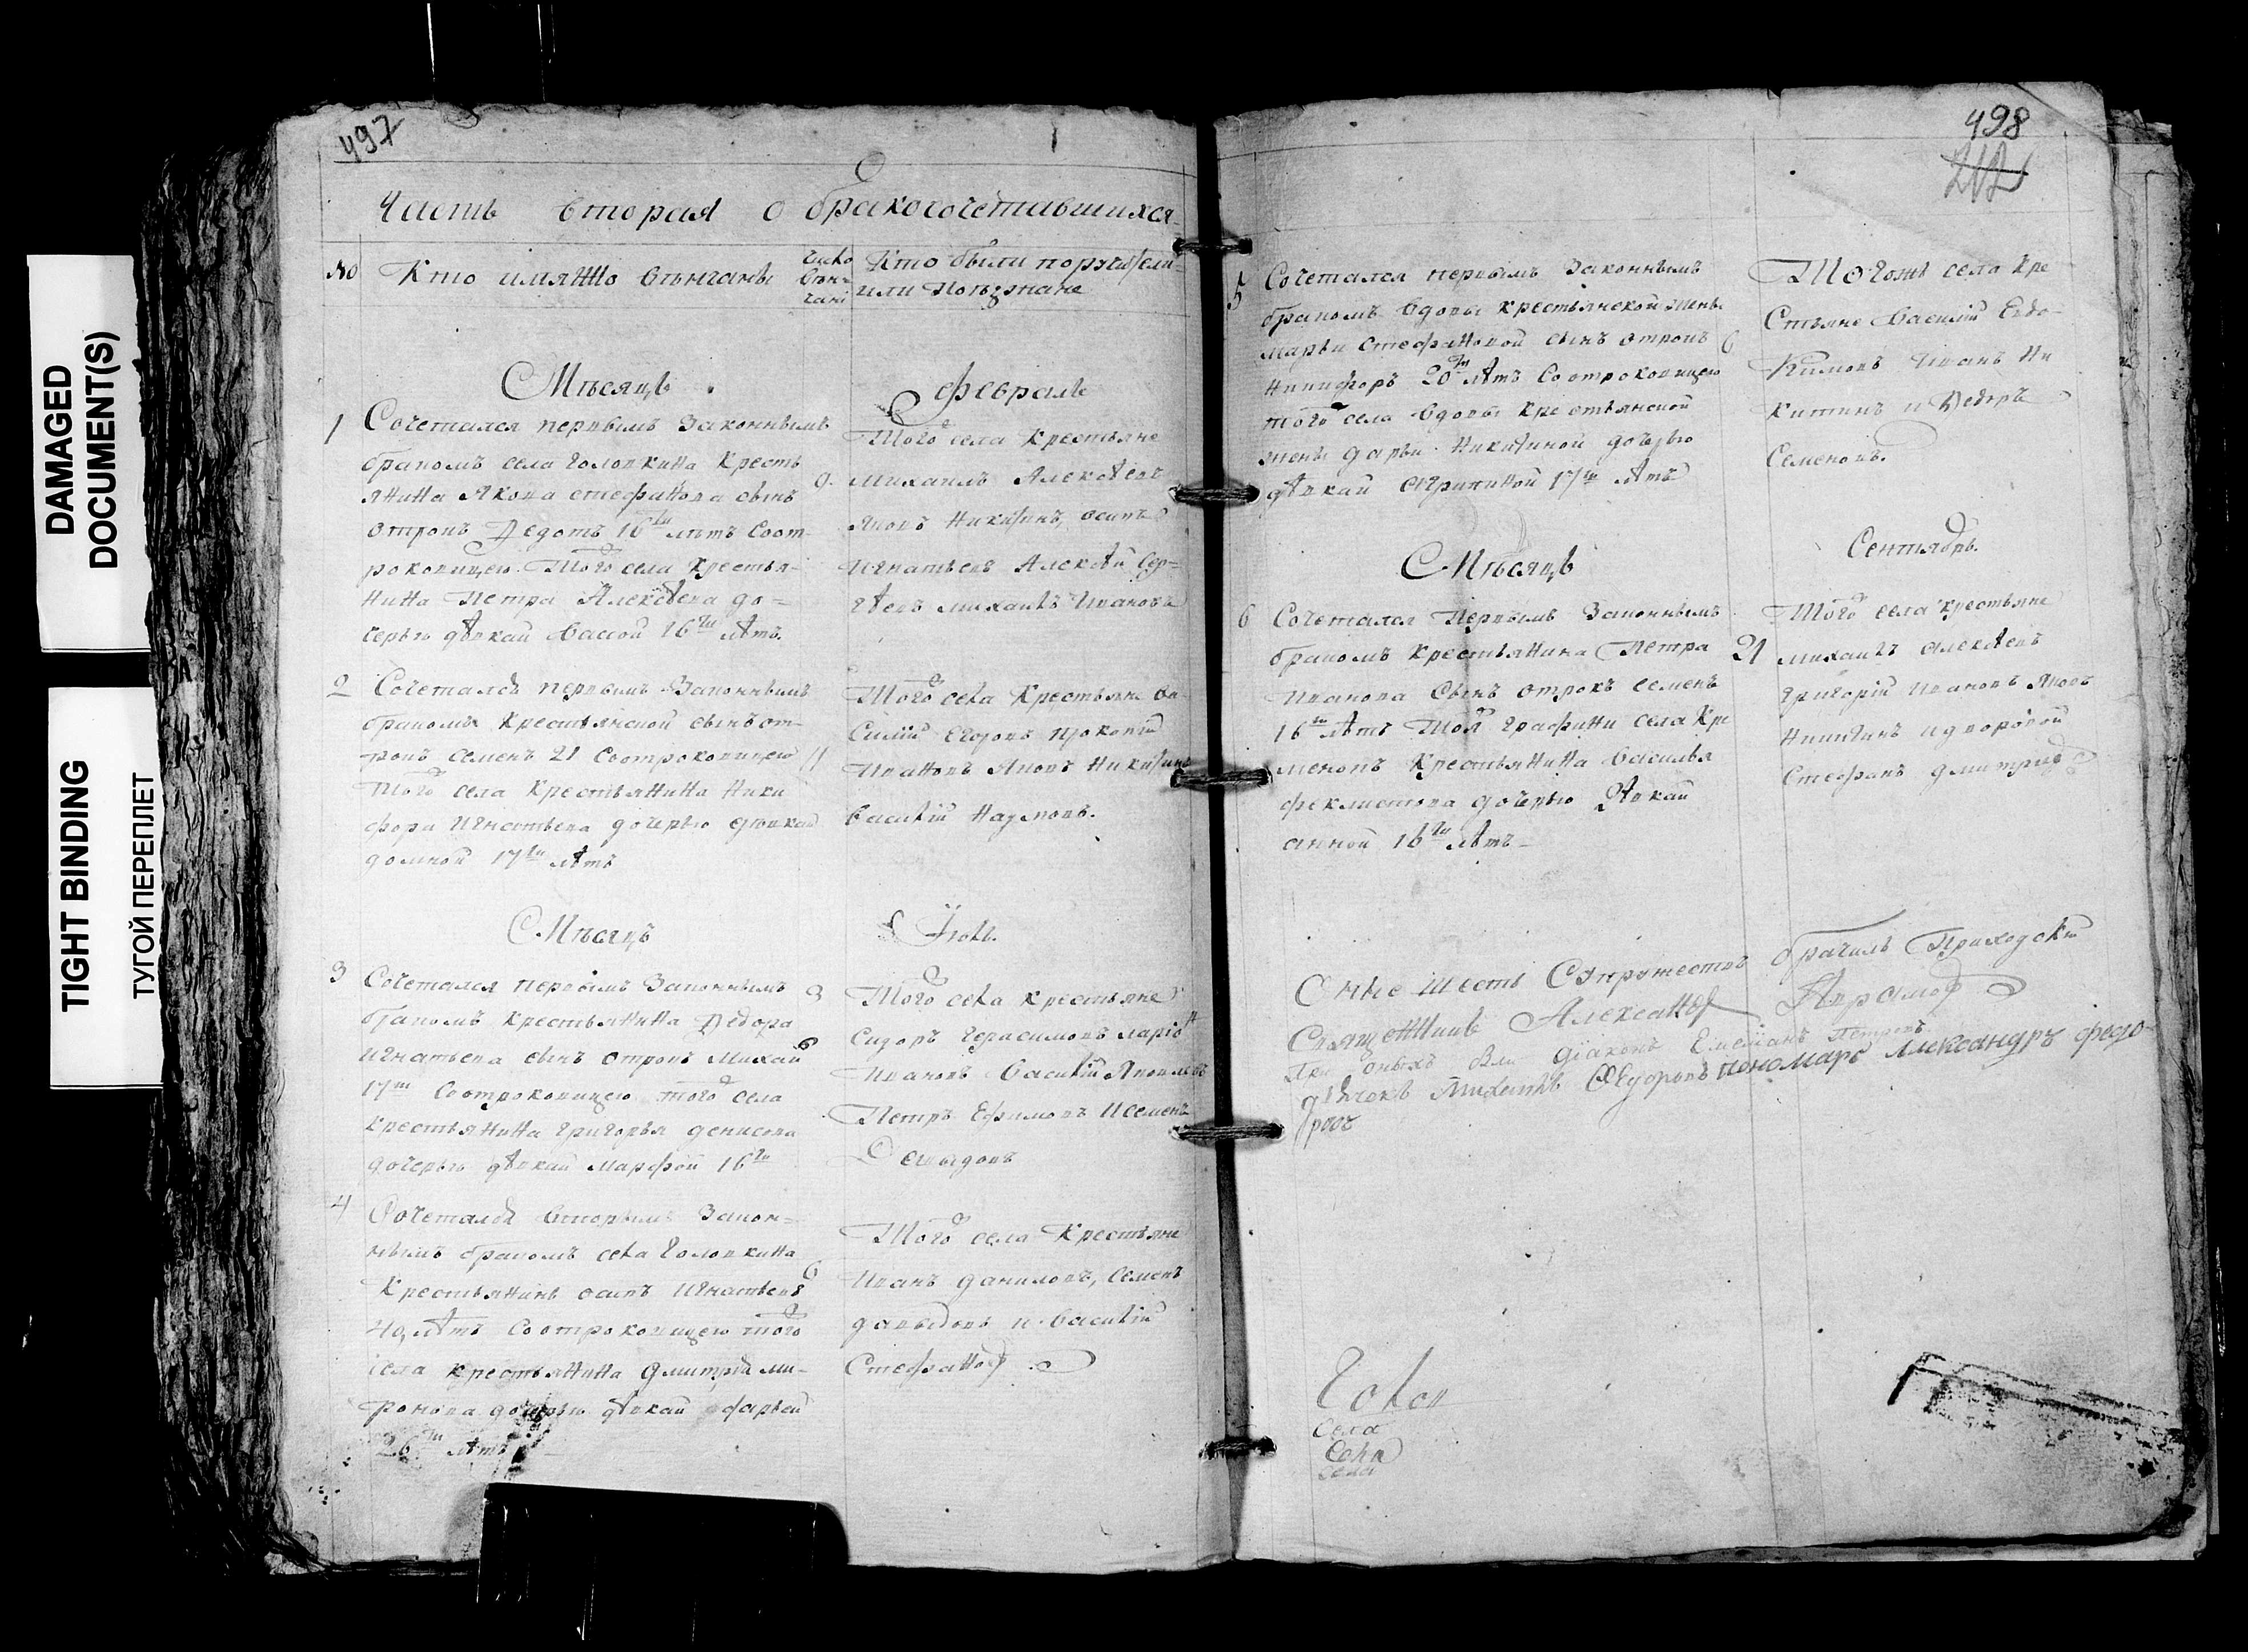 DAMAGED
DOCUMENT(S)
TIGHT BINDING
ТУГОЙ ПЕРЕПЛЕТ
497
Часть вторая о бракосочетавшихся
№ Кто имянно венчаны
число
венчани
Кто были поручители
или поезжане
Мѣсяцъ Февраль
1 Сочетался первымъ законнымъ
бракомъ села Головкина кресть
янина Якова Стефанова сынъ
отрокъ Ѳедотъ 16ти лѣтъ соот
роковицею того села крестья-
нина Петра Алексѣева до=
черью дѣвкай Васой 16ти лѣтъ.
9.
Того села крестьяне
Михаилъ Алексѣевъ
Яковъ Никитинъ, осипъ
Игнатьевъ Алексѣй Сер=
гѣевъ Михаилъ Ивановъ
2 Сочетался первымъ законнымъ
бракомъ крестьянской сынъ от-
рокъ Семенъ 21 соотроковицею
того села крестьянина Ники
фора Игнатьева дочерью дѣвкай
домной 17ти лѣтъ
11
Того села крестьяне Ва
силій Егоровъ Прокопій
Ивановъ Яковъ Никитинъ
Василій Наумовъ.
Мѣсяцъ Іюль.
3 Сочетался первымъ законнымъ
бракомъ крестьянина Ѳедора
Игнатьева сынъ отрокъ Михай
17ти соотроковицею того села
крестьянина Григорья Денисова
дочерью дѣвкай Марфой 16ти
Того села крестьяне
Сидоръ Герасимовъ Ларіо
Ивановъ Василій Яковлевъ
Петръ Ефимовъ и Семенъ
Давыдовъ
4 Сочетался вторымъ закон=
нымъ бракомъ села Головкина
крестьянинъ осипъ Игнатьевъ
40 лѣтъ соотроковицею того
села крестьянина Дмитрія Ми-
ронова дочерью дѣвкай дарьей
26ти лѣтъ
6
Того села крестьяне
Иванъ Даниловъ, Семенъ
Давыдовъ и Василій
Стефановъ
498
212
5 Сочетался первымъ законнымъ
бракомъ вдовы крестьянской жены
Марьи Стефановой сынъ отрокъ
Никифоръ 20ти лѣтъ соотроковицею
того села вдовы крестьянской
жены Дарьи Никитиной дочерью
дѣвкай Агрипиной 17ти лѣтъ
6
Тогожъ села кре
стьяне Василій Евдо-
кимовъ Иванъ Ни
китинъ и Ѳедоръ
Семеновъ.
Мѣсяцъ Сентябрь.
6 Сочетался первымъ законнымъ
бракомъ крестьянина Петра
Иванова сынъ отрокъ Семенъ
16ти лѣтъ тоя графини села Кре
менокъ крестьянина Василья
Феклистова дочерью дѣвкай
анной 16ти лѣтъ
21
Того села крестьяне
Михаилъ Алексѣевъ
Григорій Ивановъ Яковъ
Никитинъ и дворовой
Стефанъ Дмитріевъ
Оные шесть супружествъ брачилъ Приходскій
Священникъ Александръ Авраамовъ
При оныхъ были діаконъ Емеліанъ Петровъ
дьячокъ Михаилъ Ѳедоровъ пономарь Александръ Федо-
ровъ
Голов
Села
Села